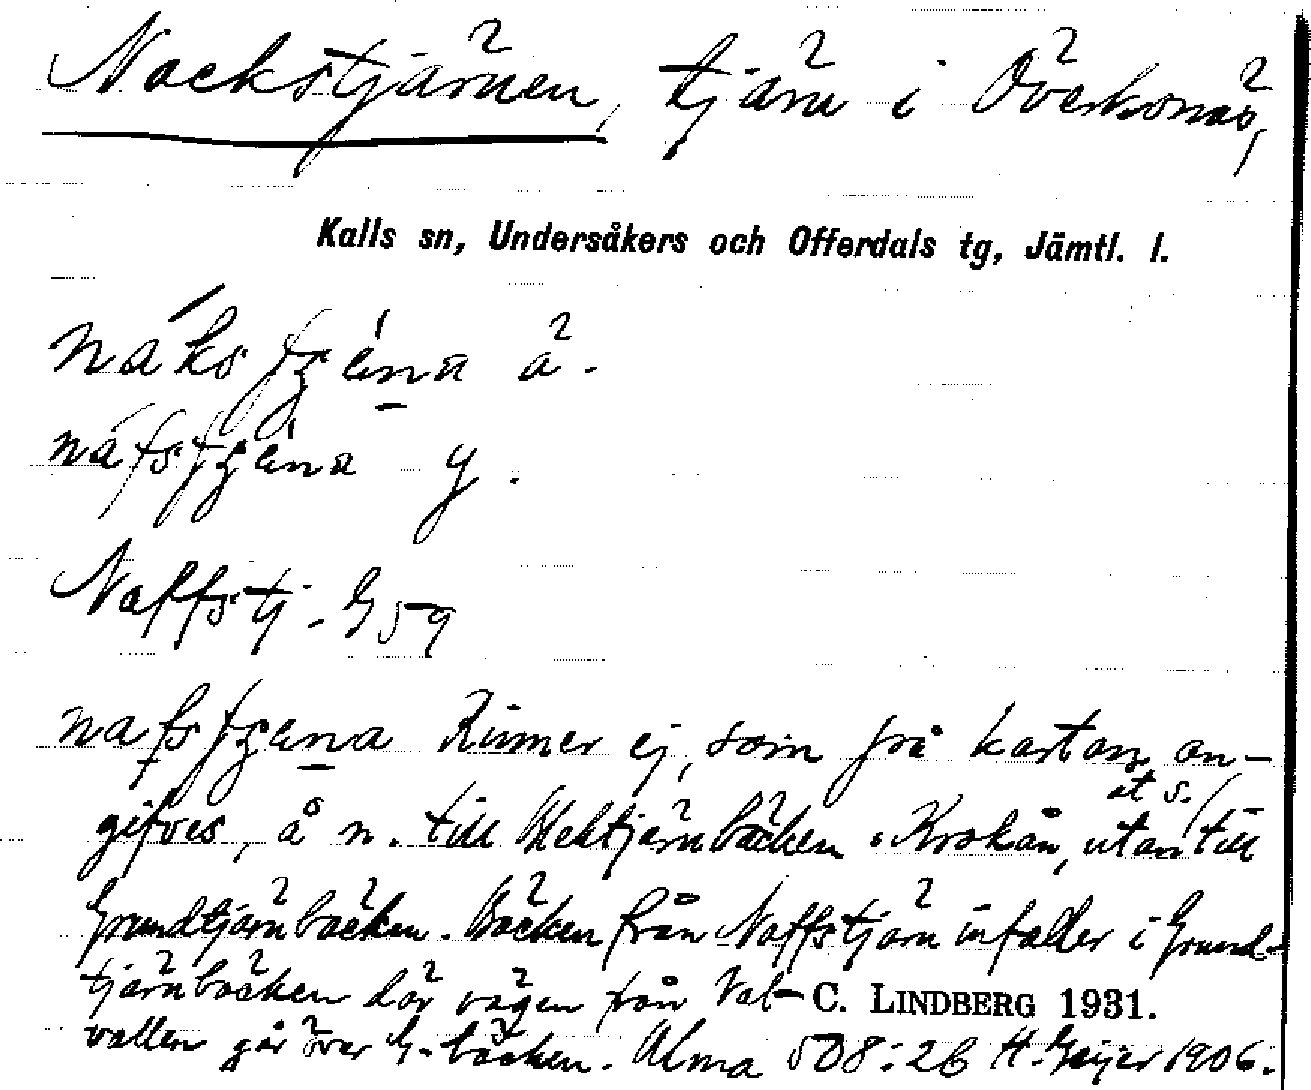 Nackstjärnen, tjärn i Överkonäs,
Kalls sn, Undersåkers och Offerdals tg, Jämtl. l.
ä.
y.
Naffstj. G 59
Rinner ej, som på kartan an-
gifves, å n. till Mehtjärnbäcken . Krokån, utan åt s. till
Grundtjärnbäcken. Bäcken från Naffstjärn infaller i Grund-
tjärnbäcken där vägen från Val- C. LINDBERG 1931.
vallen går över G-bäcken. Alma 508:26 H. Geijer 1906.